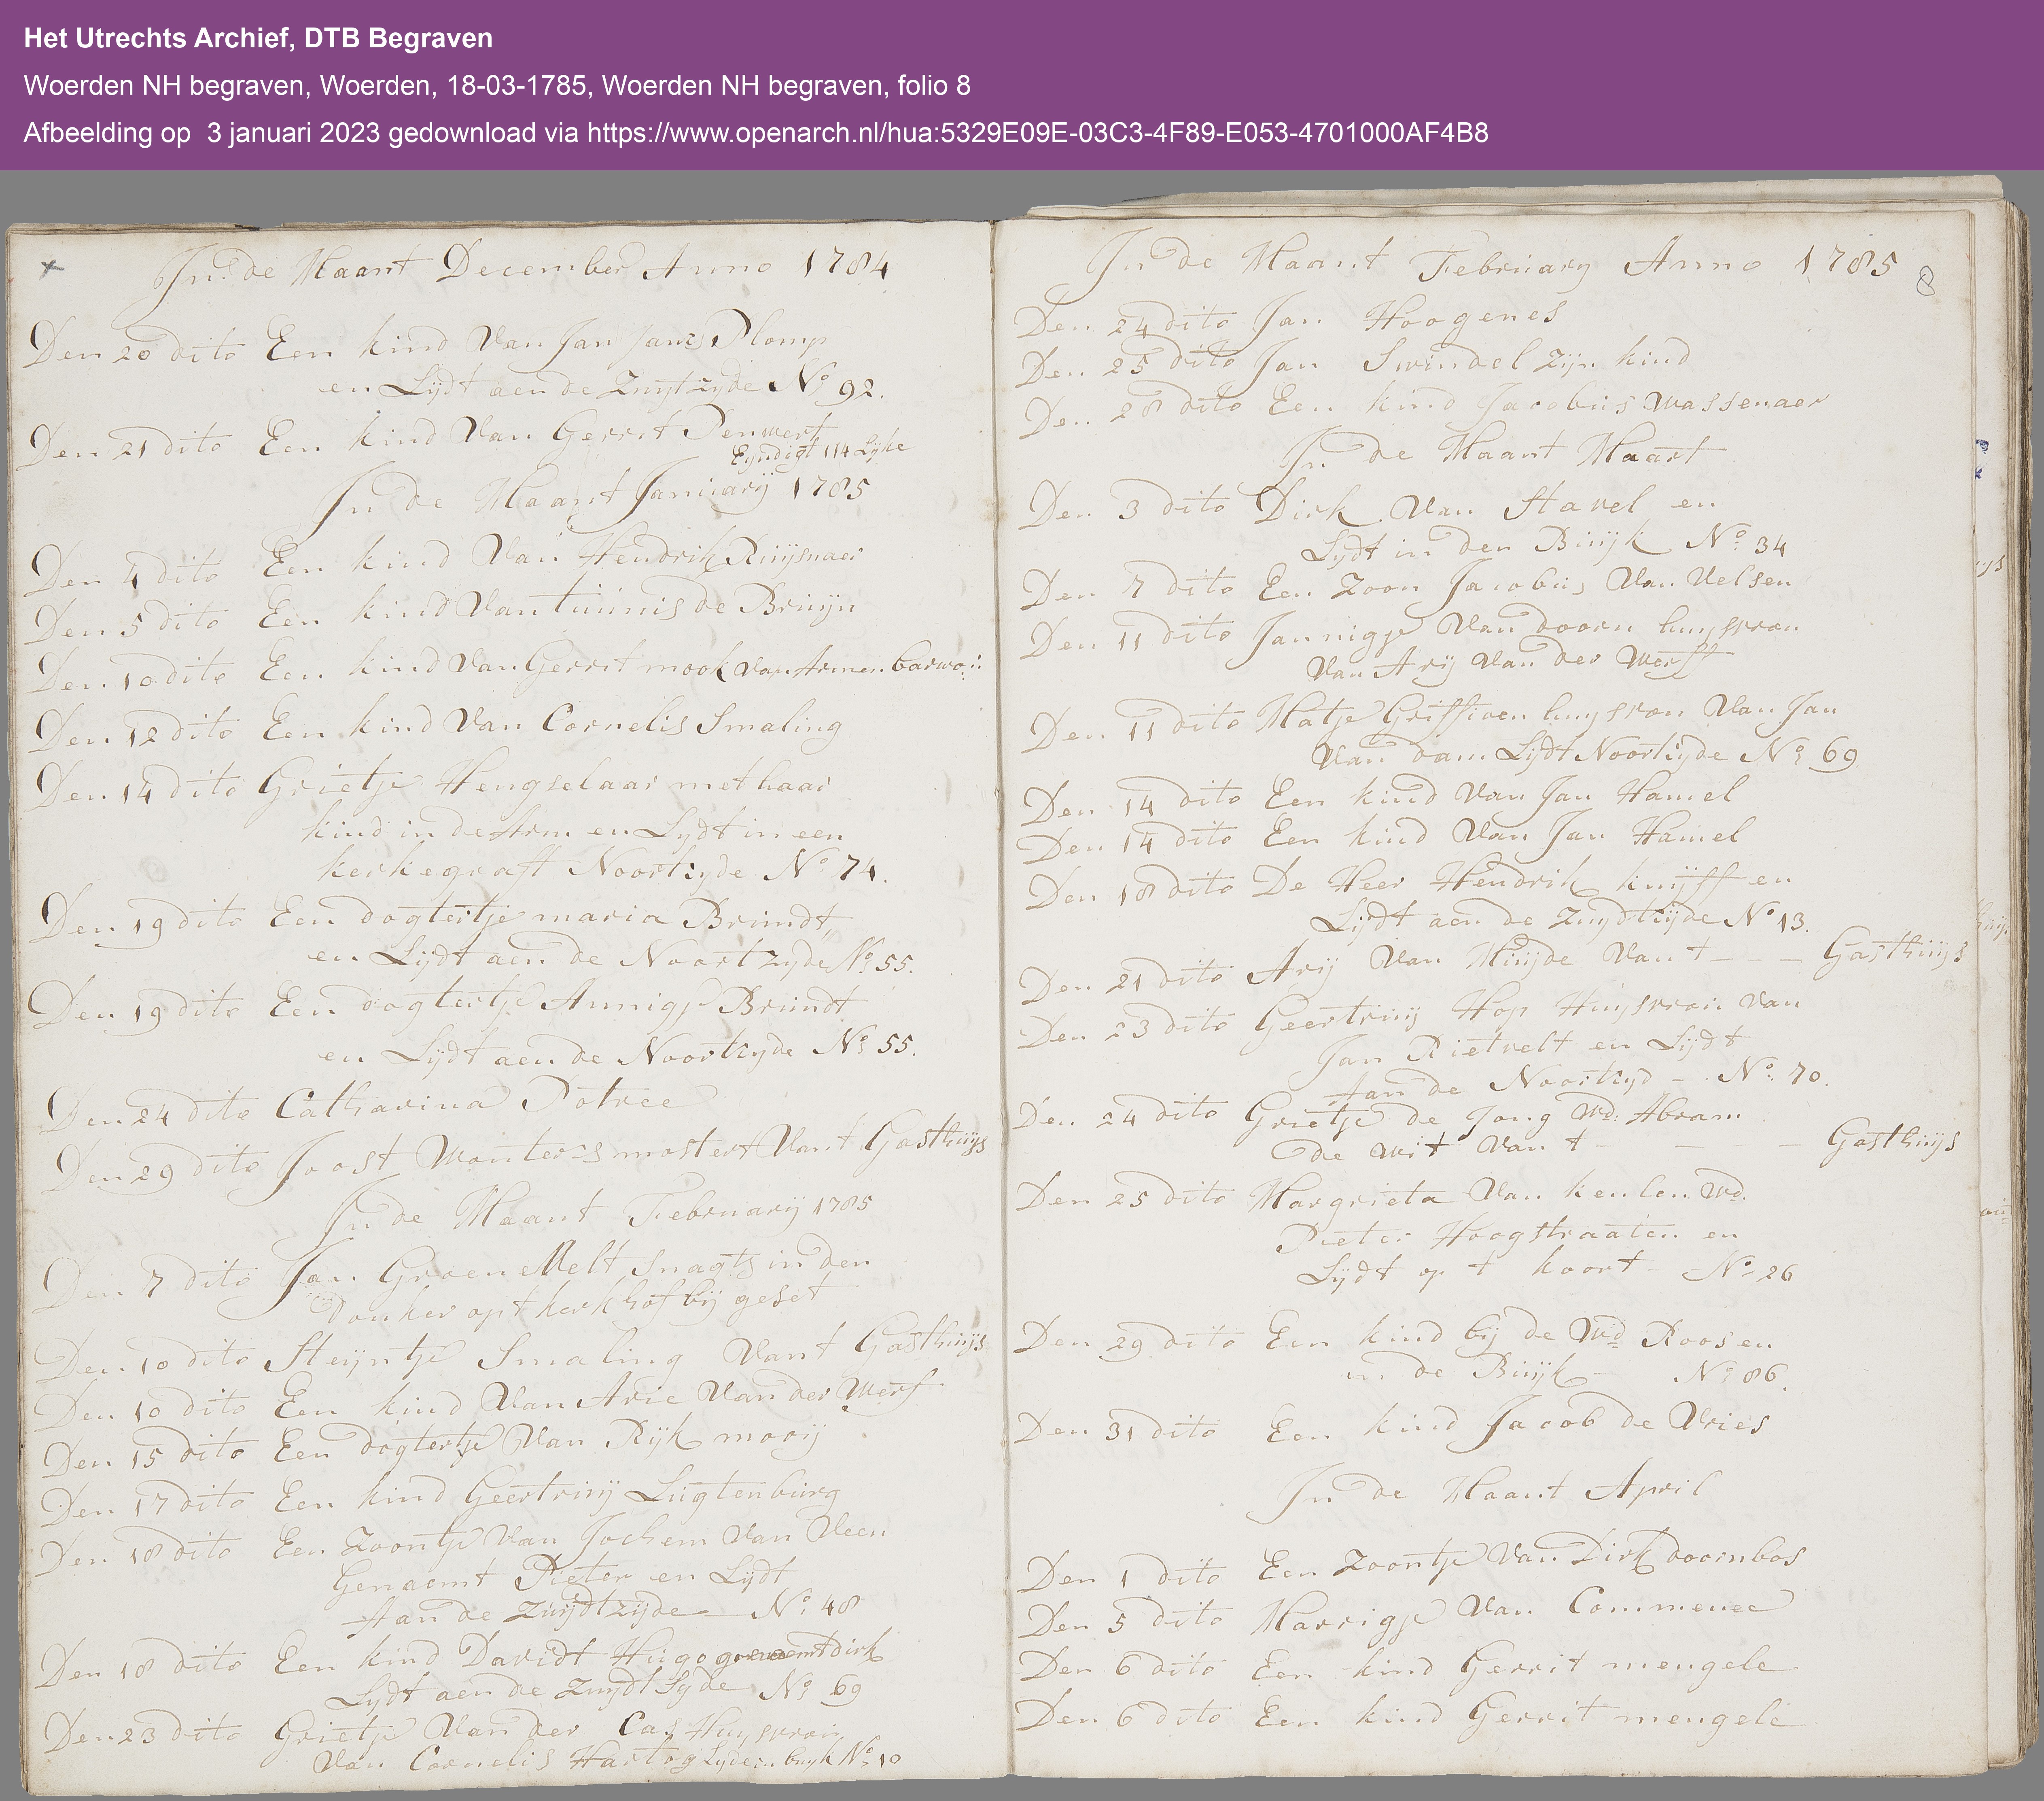 Het Utrechts Archief, DTB Begraven
Woerden NH begraven, Woerden, 18-03-1785, Woerden NH begraven, folio 8
Afbeelding op 3 januari 2023 gedownload via https://www.openarch.nl/hua:5329E09E-03C3-4F89-E053-4701000AF4B8
In de Maant December Anno 1784
Den 20 dito Een kind Van Jan Jans Plomp
en Lijdt aen de Zuytzyde No 92.
Den 21 dito Een kind Van Gerrit Penwert
Eyndigt 114 Lyke
In de Maant Januarij 1785
Den 4 dito Een kind Van Hendrik Ruijsnaer
Den 5 dito Een kind Van tuinis de Bruijn
Den 10 dito Een kind Van Gerrit mook van Armen
Den 12 dito Een kind Van Cornelis Smaling
Den 14 dito Grietje Hengselaar met haar
kind in de Arm en Lydt in een
kerkegraft Noortzyde No 74.
Den 19 dito Een dogtertje maria Brundt
en Lijdt aen de Noortzyde No 55.
Den 19 dito Een dogtertje Annigje Brundt
en Lijdt aen de Noortzyde No 55.
Den 24 dito Catharina Potree
Den 29 dito Joost Wouters mostert Van t Gasthuijs
In de Maant Februarij 1785
Den 7 dito Jan GroeneVelt snagts in den
donker op t kerkhof bij geset
Den 10 dito Steijntje Smaling Van t Gasthuijs
Den 10 dito Een kind Van Arie Van der Werf
Den 15 dito Een dogtertje Van Rijk mooij
Den 17 dito Een kind Geertruij Lugtenburg
Den 18 dito Een Zoontje Van Jochem Van Veen
Genaemt Pieter en Lijdt
Aan de Zuijdtzijde No 48
Den 18 dito Een kind Davidt Hugo genaemt dirk
Lydt aen de Zuydt Syde No 69
Den 23 dito Grietje Van der Cas Huysvrou
Van Cornelis Hartog Lyde in buyk No 10
In de Maant February Anno 1785
8
Den 24 dito Jan Hoogenes
Den 25 dito Jan Swindel Zijn kind
Den 28 dito Een kind Jacobus Wassenaer
In de Maant Maart
Den 3 dito Dirk Van Stavel en
Lydt in den Buijk No 34
Den 7 dito Een Zoon Jacobus Van Velsen
Den 11 dito Jannigje Van doorn huysvrou
Van Arij Van der Werff
Den 11 dito Matje Griffioen huysvrou Van Jan
Van dam Lijdt Noortzyde No 69
Den 14 dito Een kind Van Jan Hamel
Den 14 dito Een kind Van Jan Hamel
Den 18 dito De Heer Hendrik knijff en
Lijdt aen de Zuydtzijde No 13.
Den 21 dito Arij Van Muijde Van t - - - Gasthuijs
Den 23 dito Geertruij Hop Huysvrou Van
Jan Rietvelt en Lijdt
Aan de Noortzyd - No. 70.
Den 24 dito Grietje de Jong Wd: Abram
de wit Van t - - - Gasthuijs
Den 25 dito Margrieta Van keulen Wd.
Pieter Hoogstraaten en
Lijdt op t koort - No 26
Den 29 dito Een kind bij de Wd Roos en
in de Buijk - No 86.
Den 31 dito Een kind Jacob de Vries
In de Maant April
Den 1 dito Een Zoontje Van Dirk doornbos
Den 5 dito Marrigje Van Commenee
Den 6 dito Een kind Gerrit mengele
Den 6 dito Een kind Gerrit mengele